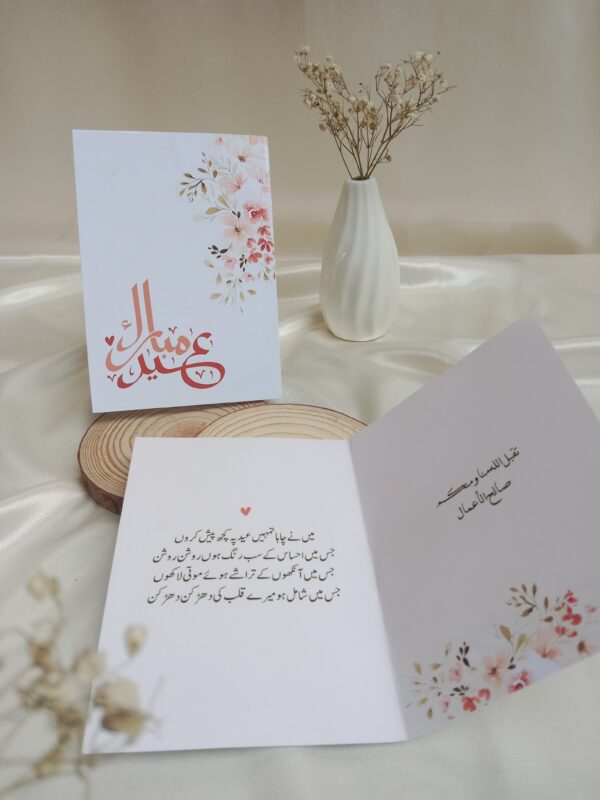 عيد مبارك
میں نے چاہا تمہیں عید پہ کچھ پیش کروں
جس میں احساس کے سب رنگ ہوں روشن روشن
جس میں آنکھوں کے تراشے ہوئے موتی لاکھوں
جس میں شامل ہو میرے قلب کی دھڑکن دھڑکن
تقبل الله منا ومنكم
صالح الأعمال